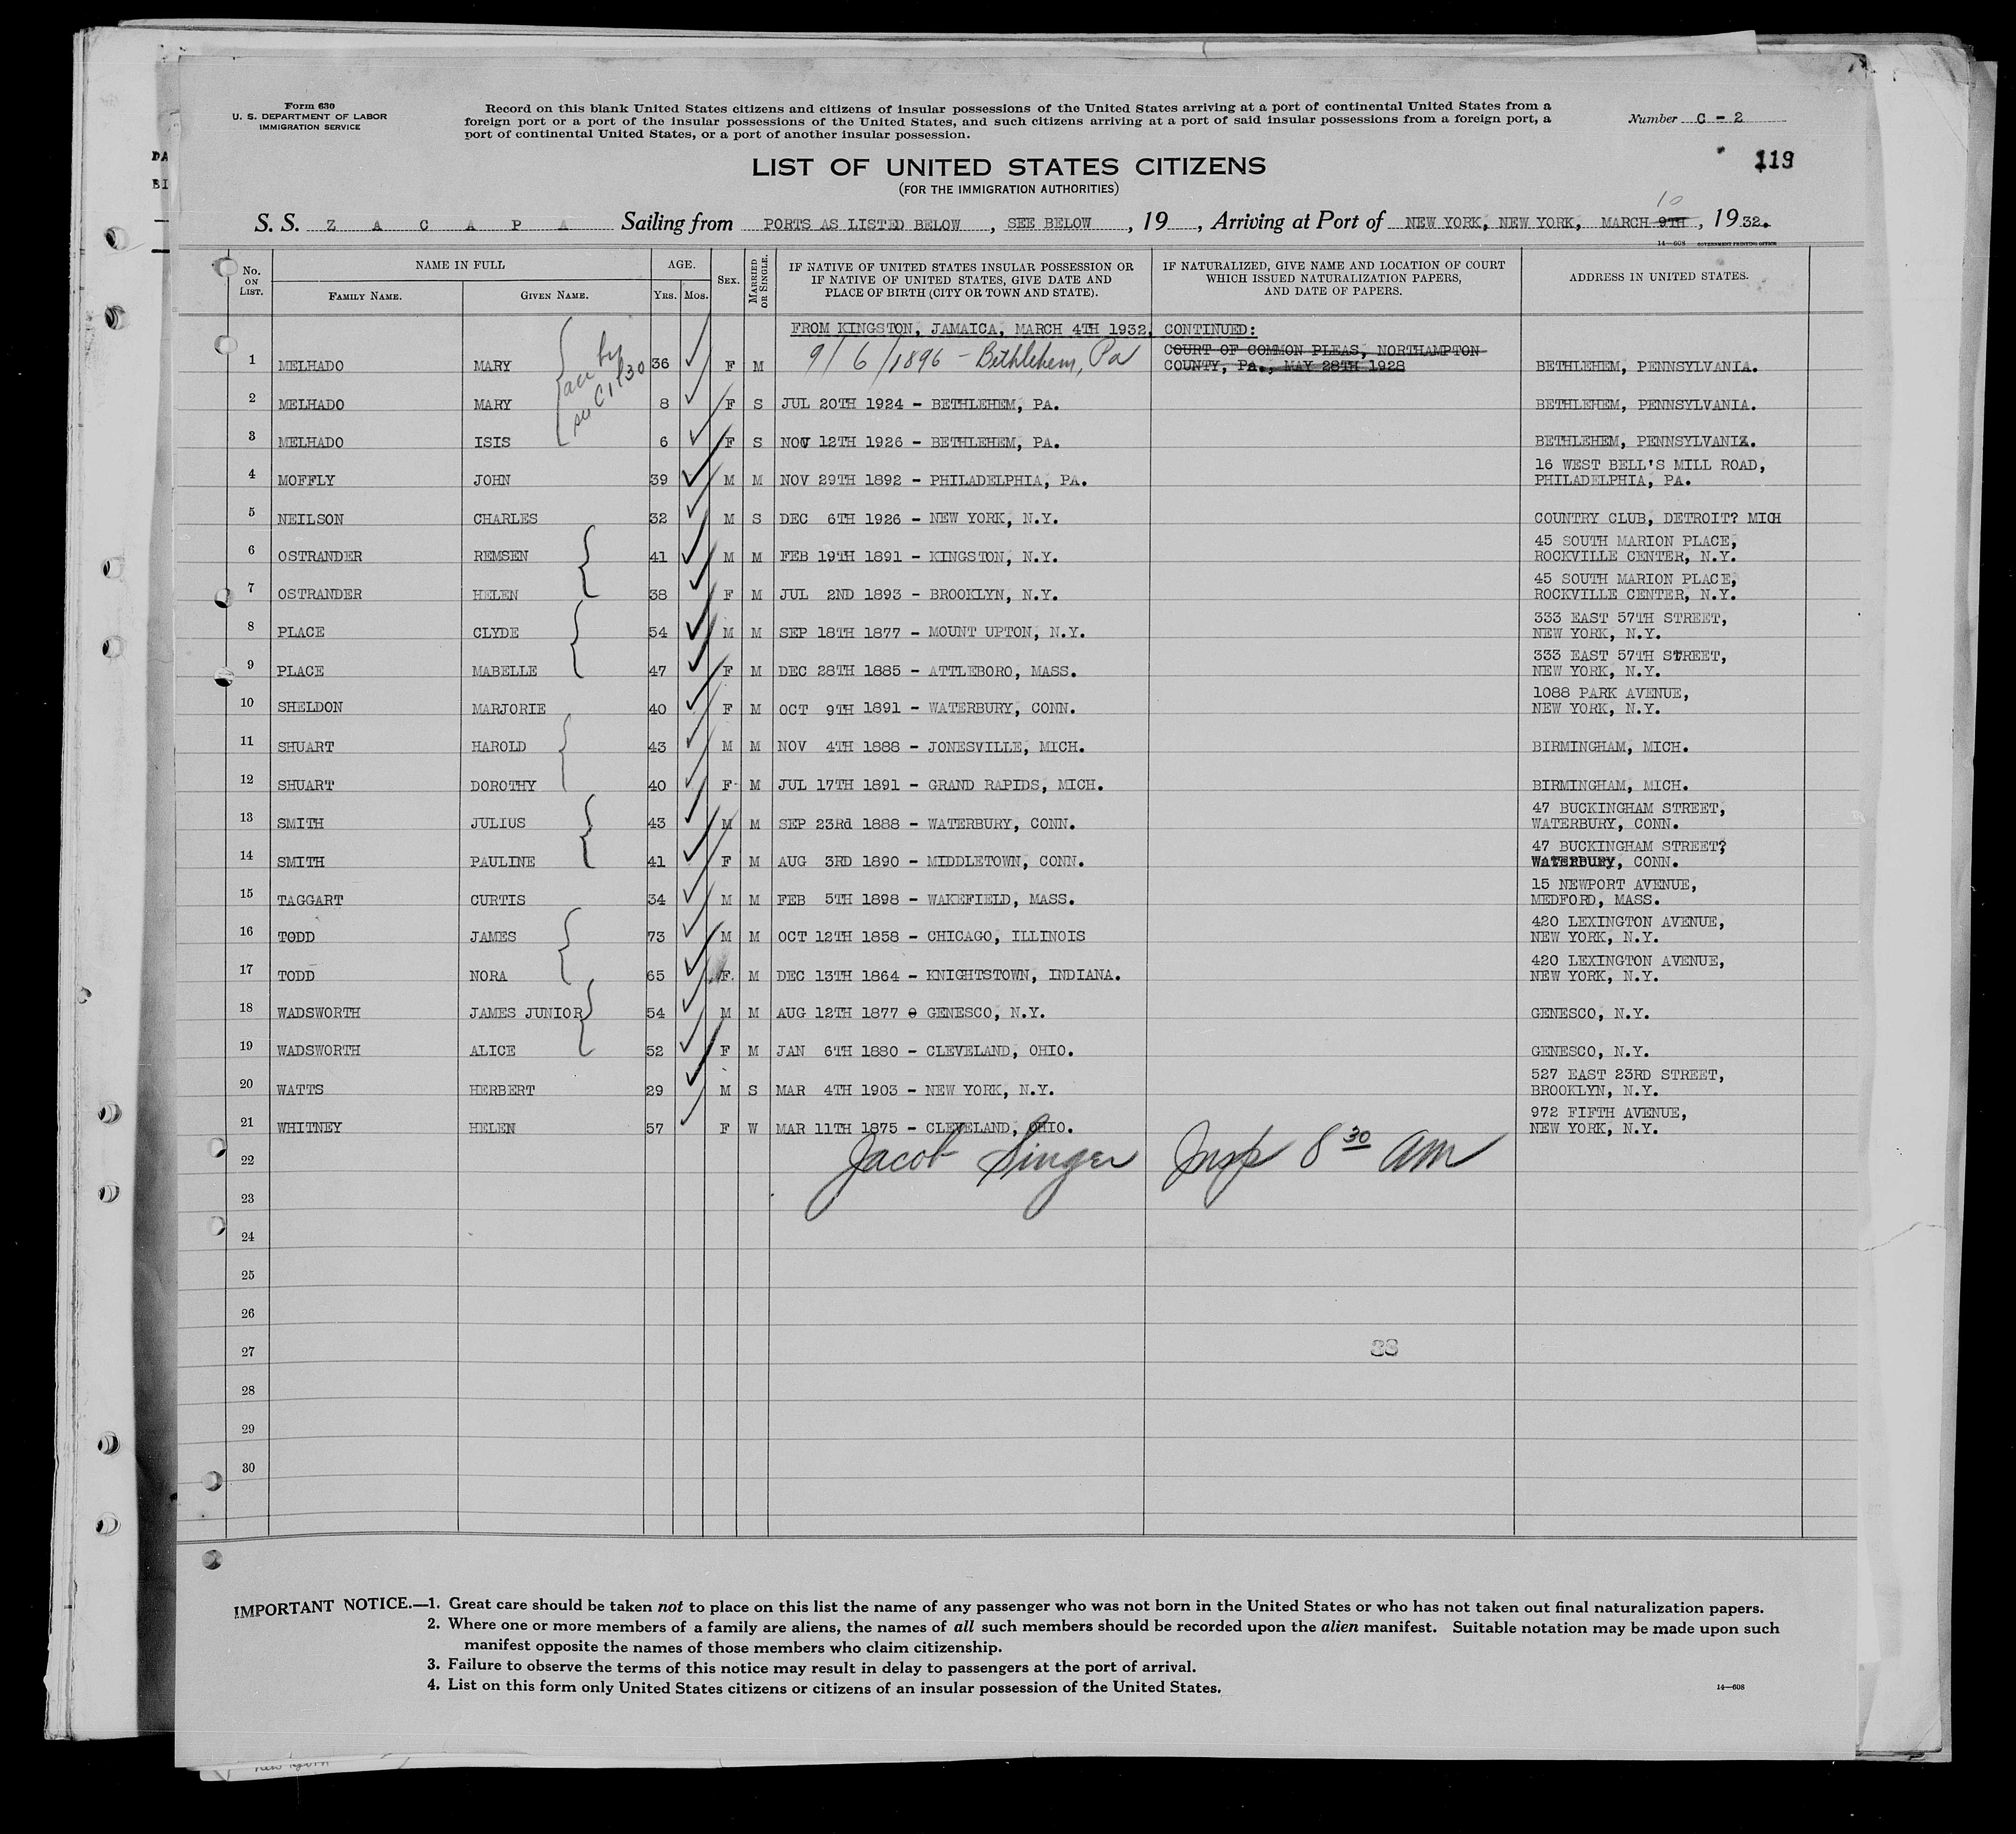 Form 630
U. S. DEPARTMENT OF LABOR
IMMIGRATION SERVICE
Record on this blank United States citizens and citizens of insular possessions of the United States arriving at a port of continental United States from a
foreign port or a port of the insular possessions of the United States, and such citizens arriving at a port of said insular possessions from a foreign port, a
port of continental United States, or a port of another insular possession.
Number C - 2
119
LIST OF UNITED STATES CITIZENS
(FOR THE IMMIGRATION AUTHORITIES)
10
S. S. Z A C A P A Sailing from PORTS AS LISTED BELOW, SEE BELOW, 19 , Arriving at Port of NEW YORK, NEW YORK, MARCH 9TH, 1932.
14—608 GOVERNMENT PRINTING OFFICE
No. ON LIST. NAME IN FULL FAMILY NAME. GIVEN NAME. AGE. Yrs. Mos. SEX. MARRIED OR SINGLE. IF NATIVE OF UNITED STATES INSULAR POSSESSION OR IF NATIVE OF UNITED STATES, GIVE DATE AND PLACE OF BIRTH (CITY OR TOWN AND STATE). IF NATURALIZED, GIVE NAME AND LOCATION OF COURT WHICH ISSUED NATURALIZATION PAPERS, AND DATE OF PAPERS. ADDRESS IN UNITED STATES.
FROM KINGSTON, JAMAICA, MARCH 4TH 1932, CONTINUED:
1 MELHADO MARY 36 F M 9/6/1896 - Bethlehem, Pa COURT OF COMMON PLEAS, NORTHAMPTON COUNTY, Pa., MAY 28TH 1928 BETHLEHEM, PENNSYLVANIA.
2 MELHADO MARY 8 F S JUL 20TH 1924 - BETHLEHEM, PA. BETHLEHEM, PENNSYLVANIA.
3 MELHADO ISIS 6 F S NOV 12TH 1926 - BETHLEHEM, PA. BETHLEHEM, PENNSYLVANIZ.
4 MOFFLY JOHN 39 M M NOV 29TH 1892 - PHILADELPHIA, PA. 16 WEST BELL'S MILL ROAD, PHILADELPHIA, PA.
5 NEILSON CHARLES 32 M S DEC 6TH 1926 - NEW YORK, N.Y. COUNTRY CLUB, DETROIT? MICH
6 OSTRANDER REMSEN 41 M M FEB 19TH 1891 - KINGSTON, N.Y. 45 SOUTH MARION PLACE, ROCKVILLE CENTER, N.Y.
7 OSTRANDER HELEN 38 F M JUL 2ND 1893 - BROOKLYN, N.Y. 45 SOUTH MARION PLACE, ROCKVILLE CENTER, N.Y.
8 PLACE CLYDE 54 M M SEP 18TH 1877 - MOUNT UPTON, N.Y. 333 EAST 57TH STREET, NEW YORK, N.Y.
9 PLACE MABELLE 47 F M DEC 28TH 1885 - ATTLEBORO, MASS. 333 EAST 57TH STREET, NEW YORK, N.Y.
10 SHELDON MARJORIE 40 F M OCT 9TH 1891 - WATERBURY, CONN. 1088 PARK AVENUE, NEW YORK, N.Y.
11 SHUART HAROLD 43 M M NOV 4TH 1888 - JONESVILLE, MICH. BIRMINGHAM, MICH.
12 SHUART DOROTHY 40 F M JUL 17TH 1891 - GRAND RAPIDS, MICH. BIRMINGHAM, MICH.
13 SMITH JULIUS 43 M M SEP 23Rd 1888 - WATERBURY, CONN. 47 BUCKINGHAM STREET, WATERBURY, CONN.
14 SMITH PAULINE 41 F M AUG 3RD 1890 - MIDDLETOWN, CONN. 47 BUCKINGHAM STREET? WATERBURY, CONN.
15 TAGGART CURTIS 34 M M FEB 5TH 1898 - WAKEFIELD, MASS. 15 NEWPORT AVENUE, MEDFORD, MASS.
16 TODD JAMES 73 M M OCT 12TH 1858 - CHICAGO, ILLINOIS 420 LEXINGTON AVENUE, NEW YORK, N.Y.
17 TODD NORA 65 F M DEC 13TH 1864 - KNIGHTSTOWN, INDIANA. 420 LEXINGTON AVENUE, NEW YORK, N.Y.
18 WADSWORTH JAMES JUNIOR 54 M M AUG 12TH 1877 GENESCO, N.Y. GENESCO, N.Y.
19 WADSWORTH ALICE 52 F M JAN 6TH 1880 - CLEVELAND, OHIO. GENESCO, N.Y.
20 WATTS HERBERT 29 M S MAR 4TH 1903 - NEW YORK, N.Y. 527 EAST 23RD STREET, BROOKLYN, N.Y.
21 WHITNEY HELEN 57 F W MAR 11TH 1875 - CLEVELAND, OHIO. 972 FIFTH AVENUE, NEW YORK, N.Y.
22 Jacob Singer Insp 8 30 AM
23
24
25
26
27
28
29
30
IMPORTANT NOTICE.—1. Great care should be taken not to place on this list the name of any passenger who was not born in the United States or who has not taken out final naturalization papers.
2. Where one or more members of a family are aliens, the names of all such members should be recorded upon the alien manifest. Suitable notation may be made upon such
manifest opposite the names of those members who claim citizenship.
3. Failure to observe the terms of this notice may result in delay to passengers at the port of arrival.
4. List on this form only United States citizens or citizens of an insular possession of the United States.
14—608